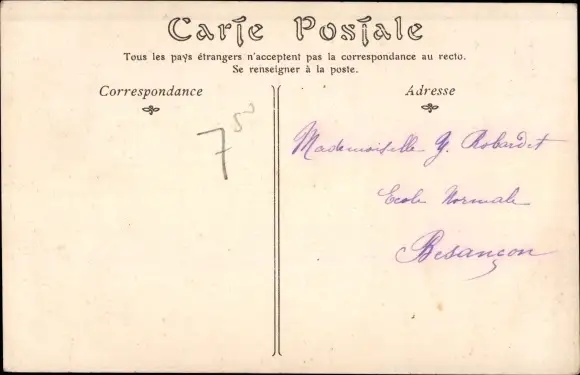 Carte Postale
Tous les pays étrangers n'acceptent pas la correspondance au recto.
Se renseigner à la poste.
Correspondance
Adresse
7 50
Mademoiselle Y. Robardet
Ecole Normale
Besançon